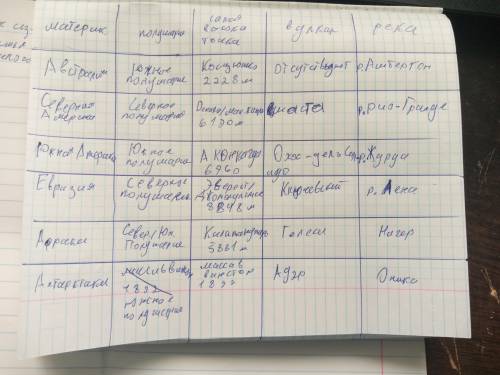 материк
полушарие
самая
высока
точка
вулкан
река
Австралия
Южное
полушарие
Косцюшко
2228 м
Отсутствуют
р. Ашбертон
Северная
Америка
Северное
полушарие
6190 м
шаста
р. Рио-Гранде
Южная Америка
Южное
полушарие
Аконкагуа
6960
Охос-дель-Сал
р. Журуа
Евразия
Северное
полушарие
Эверест/
Джомолунгма
8848 м
Ключевский
р. Лена
Африка
Север/Юж
Полушарие
Килиманджаро
5881 м
Нигер
Антарктида
1892
южное
полушария
массив
винстон
Оникс